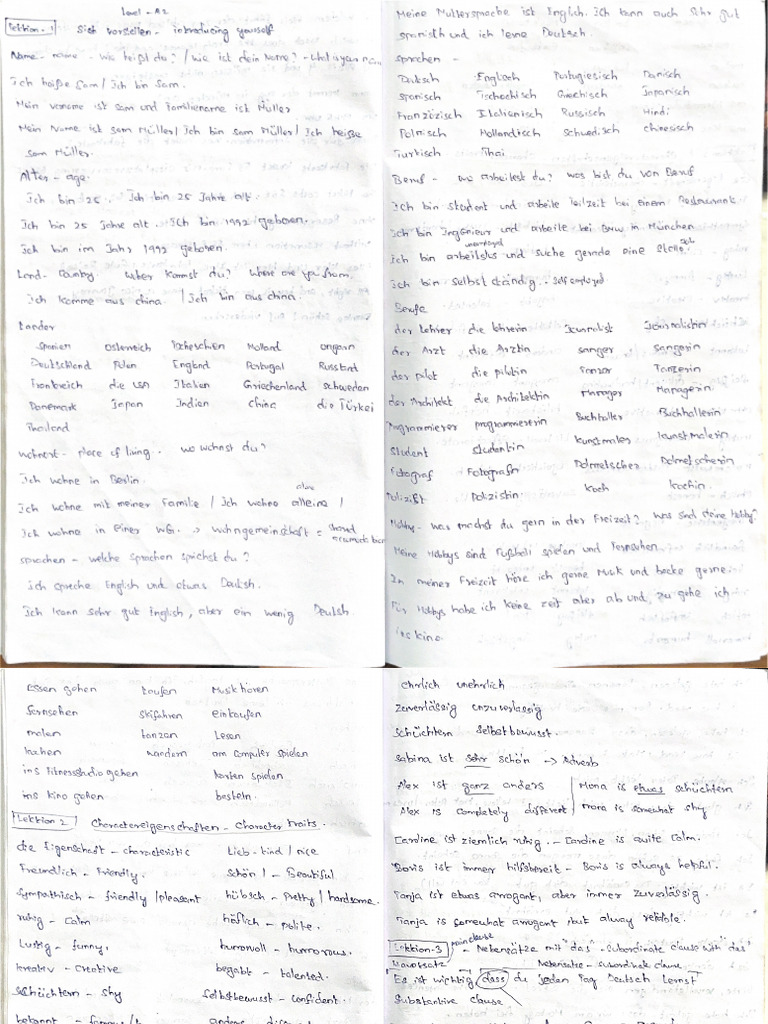 Level - A2
Lektion - 1 Sich vorsellen - introducing yourself
Name - name - wie heißt du? / wie ist dein Name? - what is your name
Ich heiße Sam / Ich bin Sam.
Mein Vorname ist Sam und Familienname ist Müller
Mein Name ist Sam Müller / Ich bin Sam Müller / Ich heiße
Sam Müller.
Alter - age.
Ich bin 25. Ich bin 25 Jahre alt.
Ich bin 25 Jahre alt. Ich bin 1992 geboren.
Ich bin im Jahr 1992 geboren.
Land - Country. Woher kommst du? Where are you from.
Ich komme aus china. / Ich bin aus china.
Länder
Spanien Österreich Tschechien Holland ungarn
Deutschland Polen England Portugal Russland
Frankreich die USA Italien Griechenland schweden
Dänemark Japan Indien China die Türkei
Thailand
wohnort - place of living. wo wohnst du?
Ich wohne in Berlin.
Ich wohne mit meiner Familie / Ich wohne alleine /
alone
Ich wohne in einer WG. → wohngemeinschaft = shared
sprachen - welche Sprachen sprichst du?
Ich spreche English und etwas Deutsh.
Ich kann sehr gut English, aber ein wenig Deutsh.
Meine Muttersprache ist English. Ich kann auch sehr gut
spanisth und ich lerne Deutsch.
sprachen -
Deutsch Englisch Portugiesisch Dänisch
Spanisch Tschechisch Griechisch Japanisch
Französisch Italienisch Russisch Hindi
Polnisch Holländisch Schwedisch chinesisch
Türkisch Thai
Beruf - wo arbeitest du? was bist du von Beruf
Ich bin student und arbeite teilzeit bei einem Restaurant
Ich bin Ingenieur und arbeite bei BMW in München
unemployed
Ich bin arbeitslos und suche gerade eine Stelle. Job
Ich bin selbstständig. self employed.
Berufe
der Lehrer die lehrerin Journalist Journalistin
der Arzt die Ärztin sänger sängerin
der pilot die pilotin Tänzer Tänzerin
der Architekt die Architektin Manager Managerin
Programmierer programmiererin Buchhalter Buchhalterin
student studentin kunstmaler kunstmalerin
Fotograf Fotografin Dolmetscher Dolmetscherin
Polizist Polizistin Koch kochin
Hobby - was machst du gern in der Freizeit? was sind deine Hobbys?
Meine Hobbys sind Fußball spielen und Fernsehen.
In meiner Freizeit höre ich gerne Musik und backe gerne
Für Hobbys habe ich keine zeit aber ab und, zu gehe ich
ins kino.
Essen gehen Laufen Musik hören
fernsehen skifahren einkaufen
malen tanzen Lesen
kochen wandern am computer spielen
ins Fitnessstudio gehen Karten spielen
ins kino gehen basteln.
Lektion 2 Charactereigenschaften - Character traits.
die Eigenschaft - characteristic Lieb - kind / nice
Freundlich - Friendly. schön / - Beautiful
sympathisch - friendly / pleasant hübsch - Pretty / handsome.
ruhig - calm höflich - polite.
Lustig - funny. humorvoll - humorous.
kreativ - creative begabt - talented.
schüchtern - shy selbstbewusst - confident.
ehrlich unehrlich
zuverlässig unzuverlässig
schüchtern selbstbewusst.
Sabina ist sehr schön → Adverb
Alex ist ganz anders Mona is etwas schüchtern
Alex is completely different Mona is somewhat shy
Cardine ist ziemlich ruhig. - Cardine is quite calm.
Boris ist immer hilfsbereit - Boris is always helpful.
Tanja ist etwas arrogant, aber immer zuverlässig.
Tanja is somewhat arrogant but alway reliable.
main clause
Lektion-3 - Nebensätze mit "das" - subordinate clause with "das"
Hauptsatz Nebensätze - subordinate clause
"Es ist wichtig, dass du jeden Tag Deutsch lernst"
Substantive clause